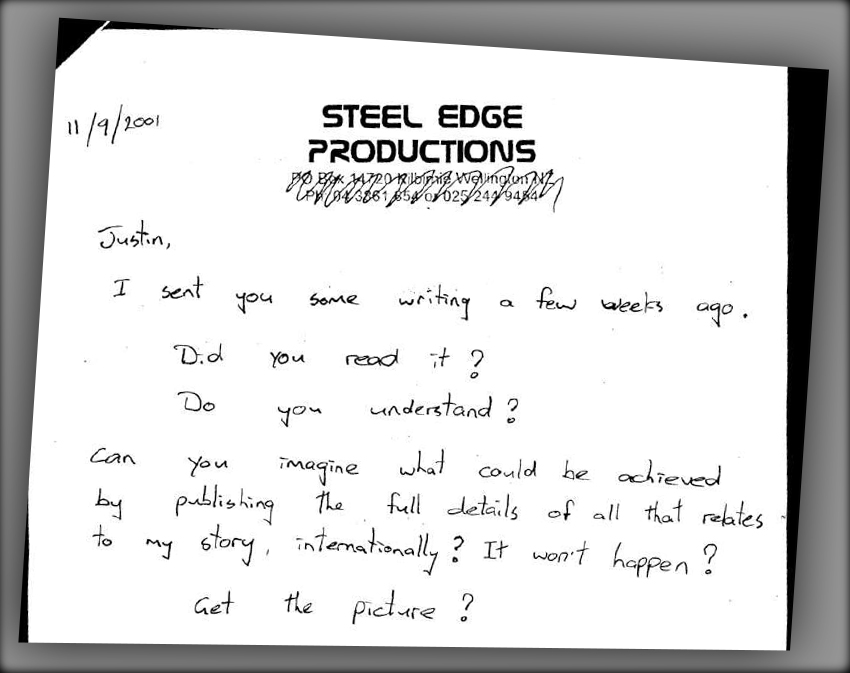 11/9/2001
STEEL EDGE
PRODUCTIONS
PO Box 14720 Kilbirnie Wellington NZ
Ph 04 3861 654 or 025 244 9484
Justin,
I sent you some writing a few weeks ago.
Did you read it?
Do you understand?
Can you imagine what could be achieved
by publishing the full details of all that relates
to my story, internationally? It won't happen?
Get the picture?